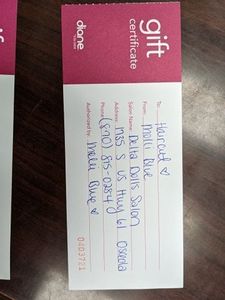 gift
certificate
diane
To: Haircut ♡
From: Molli Blue
Salon Name: Delta Dolls Salon
Address: 1135 S US Hwy 61 Osceola
Phone: (870) 815-0284
Authorized by: Molli Blue ♡
0403721